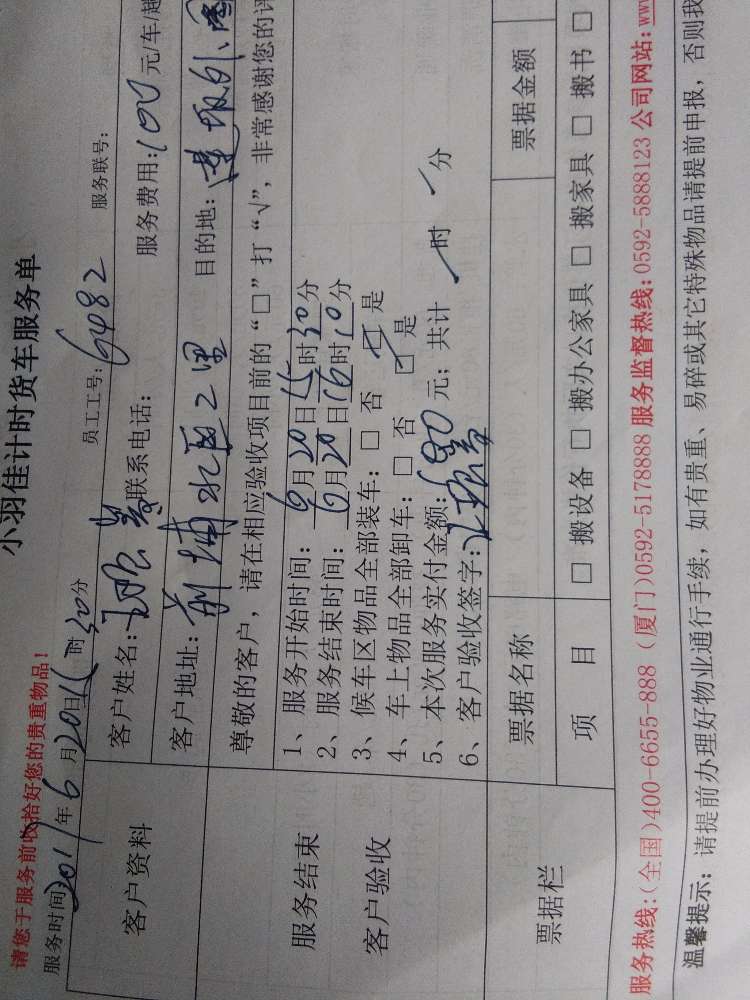 小羽佳计时货车服务单
请您于服务前收拾好您的贵重物品！
服务时间2017年6月20日15时30分 员工工号：6482 服务联号：
客户资料
客户姓名： 联系电话： 服务费用：100元/车/趟
客户地址： 目的地：
尊敬的客户，请在相应验收项目前的“□”打“√”，非常感谢您的评
服务结束
客户验收
1、服务开始时间：6月20日15时30分
2、服务结束时间：6月20日16时10分
3、候车区物品全部装车：□ 否 □ 是
4、车上物品全部卸车：□ 否 □ 是
5、本次服务实付金额： 元；共计 时 分
6、客户验收签字：
票据栏
票据名称 票据金额
项 目 □ 搬设备 □ 搬办公家具 □ 搬家具 □ 搬书 □
服务热线：（全国）400-6655-888（厦门）0592-5178888 服务监督热线：0592-5888123 公司网站：www
温馨提示：请提前办理好物业通行手续，如有贵重、易碎或其它特殊物品请提前申报，否则我